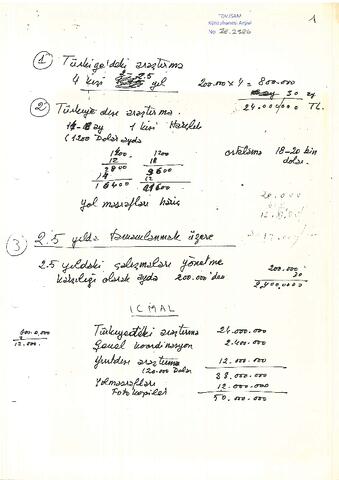 TDV İSAM
Kütüphanesi Arşivi
No 2E.2986
1
1 Türkiye'deki araştırma
4 kişi 2.5 yıl
200.000 x 4 = 800.000
30 ay
24.000.000 TL.
2 Türkiye dışı araştırma.
ay 1 kişi
(1200 Dolar ayda
1200 1200
12 18
9600
12
21600
ortalama 18-20 bin
dolar.
Yol masrafları hariç
20.000
3 2.5 yılda tamamlanmak üzere
2.5 yıldaki çalışmaları yönetme
karşılığı olarak ayda 200.000'den
200.000
30
2400.000
ICMAL
Türkiyedeki araştırma 24.000.000
Genel koordinasyon 2.400.000
Yurtdışı araştırma 12.000.000
(20.000 Dolar
38.000.000
Yolmasrafları
Fotokopiler 12.000.000
50.000.000
600.0.00
12.000.